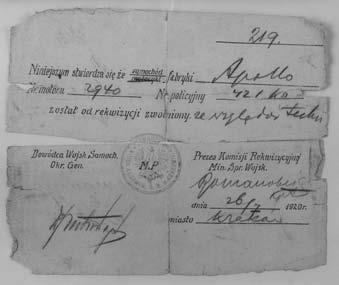 219.
Niniejszym stwierdza się że samochód motocykl fabryki Apollo
Nr. motoru 2940 Nr. policyjny 421 Kr
został od rekwizycji zwolniony, ze względów techn
Dowódca Wojsk Samoch. Prezes Komisji Rekwizycyjnej
Okr. Gen. M.P. Min. Spr. Wojsk.
dnia 26/ 1920 r.
miasto Kraków